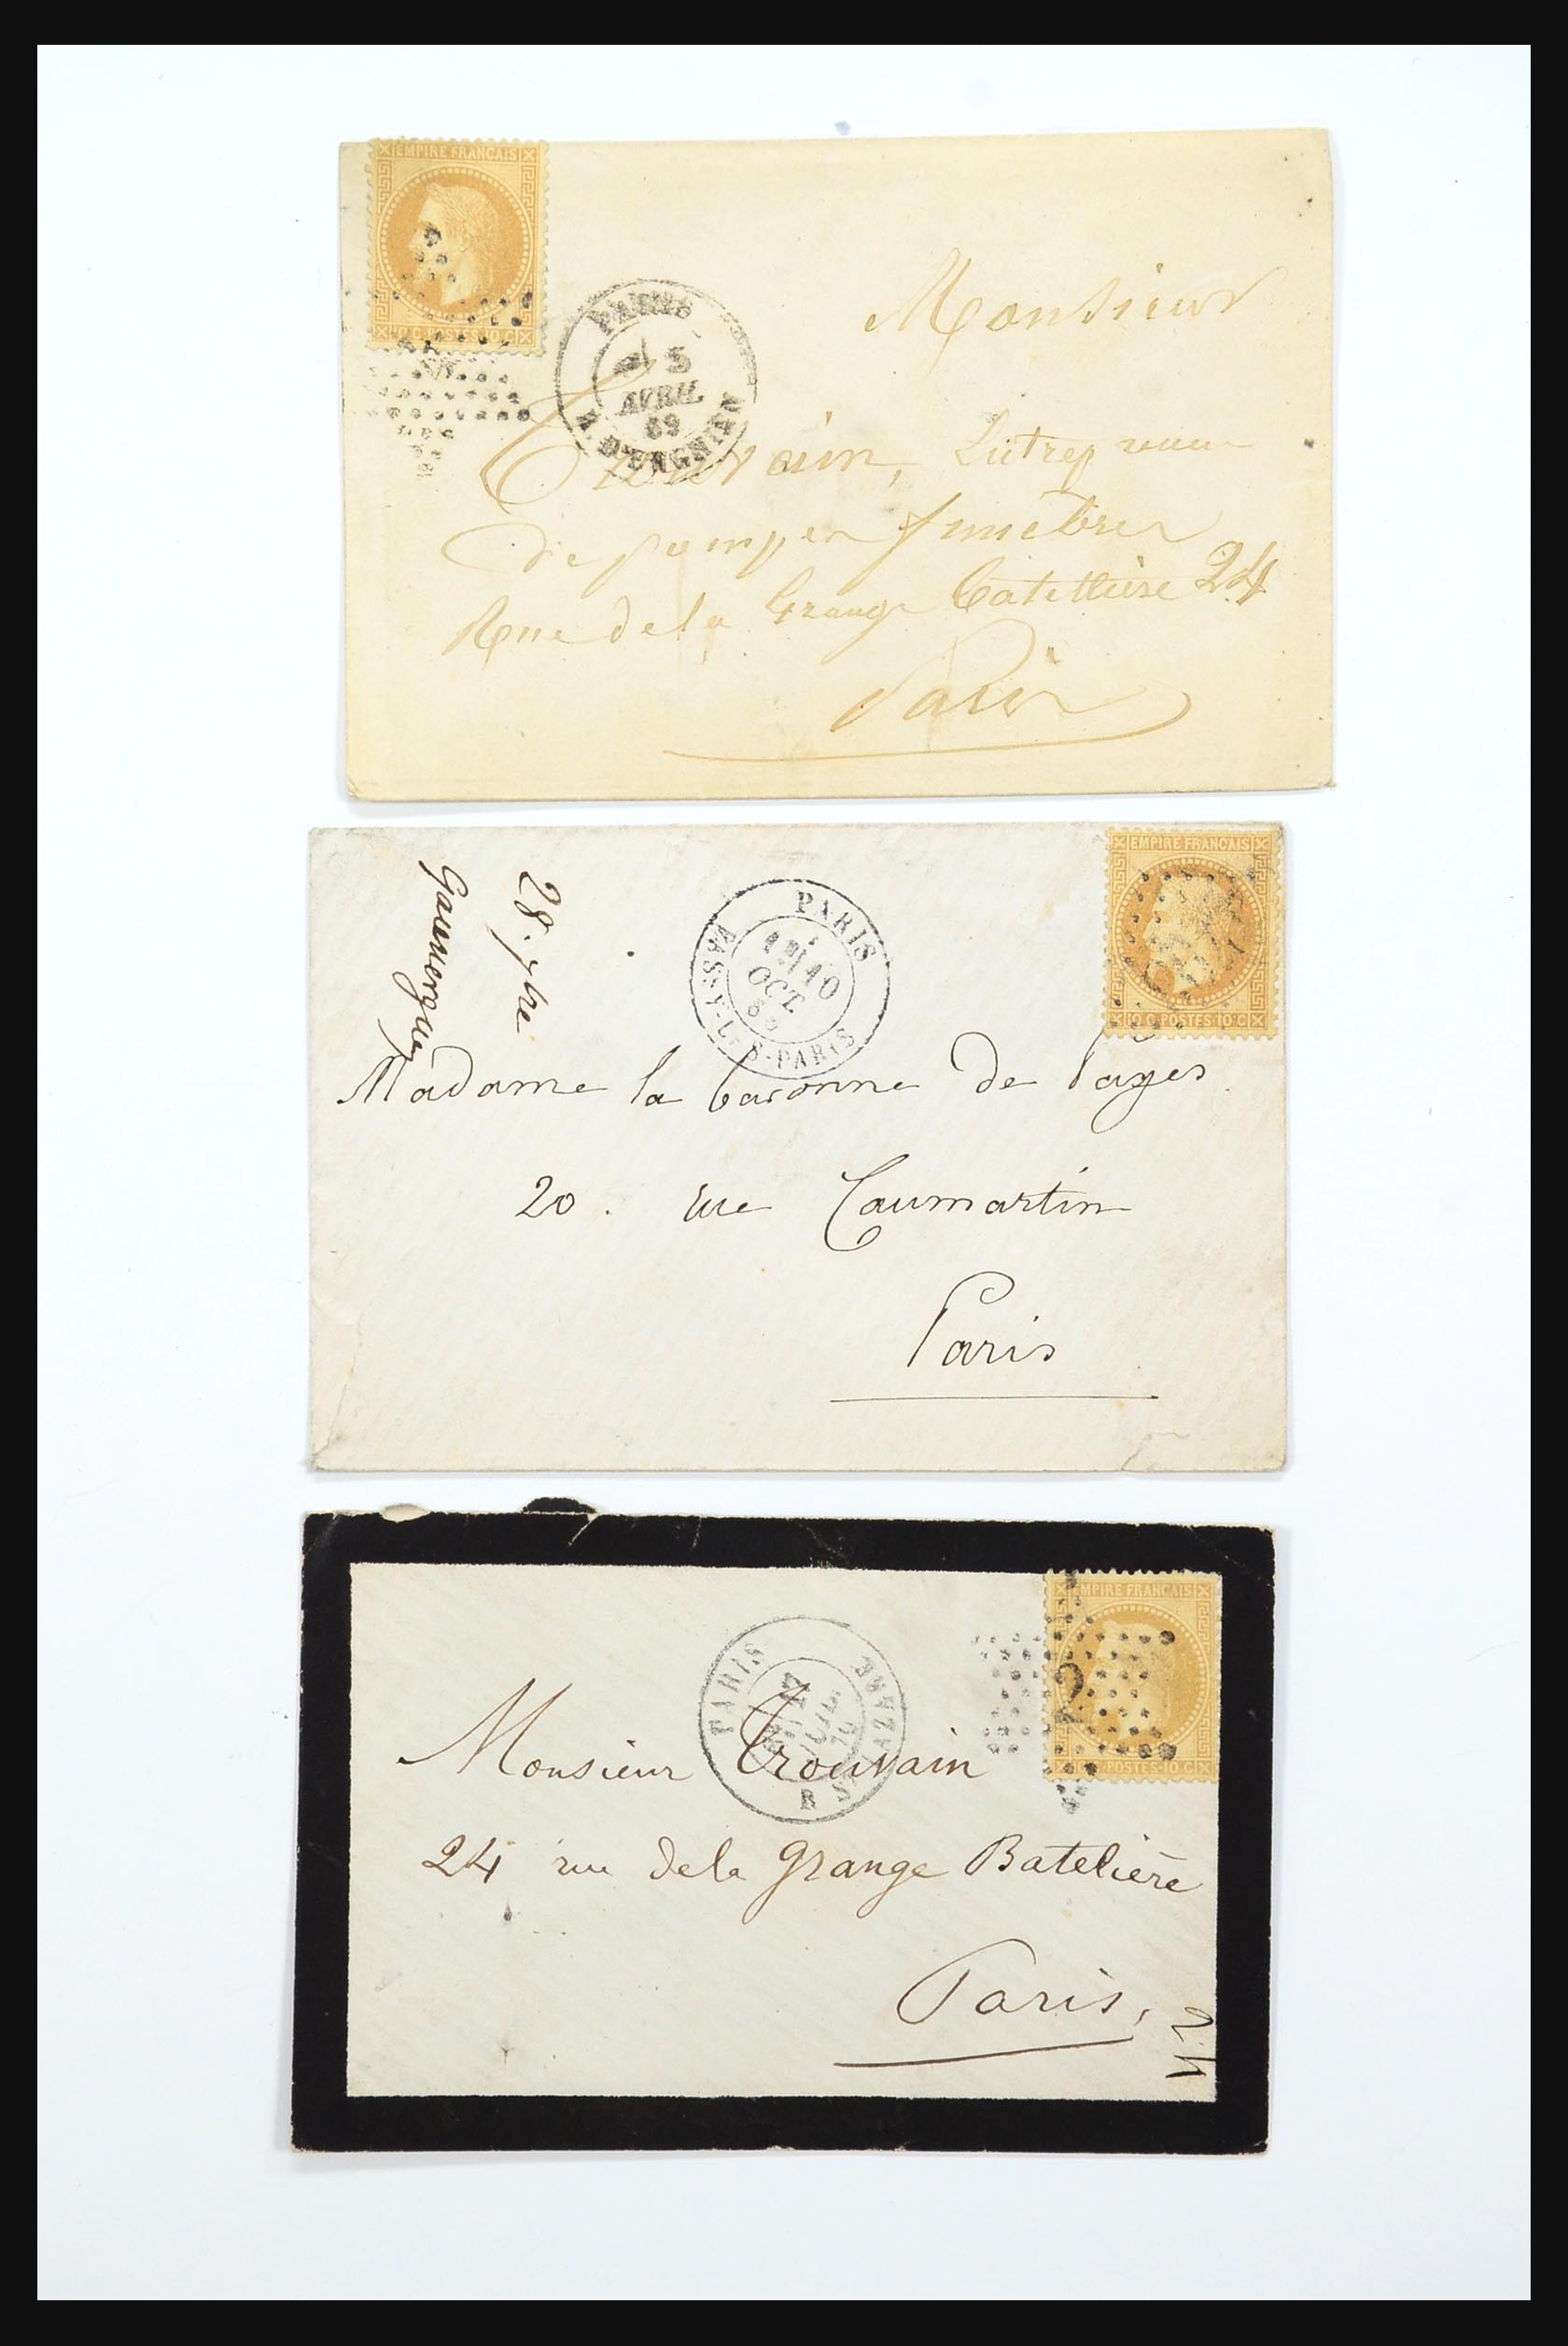 EMPIRE FRANCAIS
10 C. POSTES 10 C
PARIS
5
AVRIL
69
R. D'ENGHIEN
Monsieur
Trouvain,
de pompes funèbres
Rue de la Grange Batelliere 24
Paris
EMPIRE FRANCAIS
10 C. POSTES 10 C
PARIS
10
OCT.
PASSY-LES-PARIS
28
Madame la baronne de Pages
20. rue Caumartin
Paris
EMPIRE FRANCAIS
POSTES 10 C
2
PARIS
17
R ST LAZARE
Monsieur Trouvain
24 rue de la Grange Batelière
Paris,
24